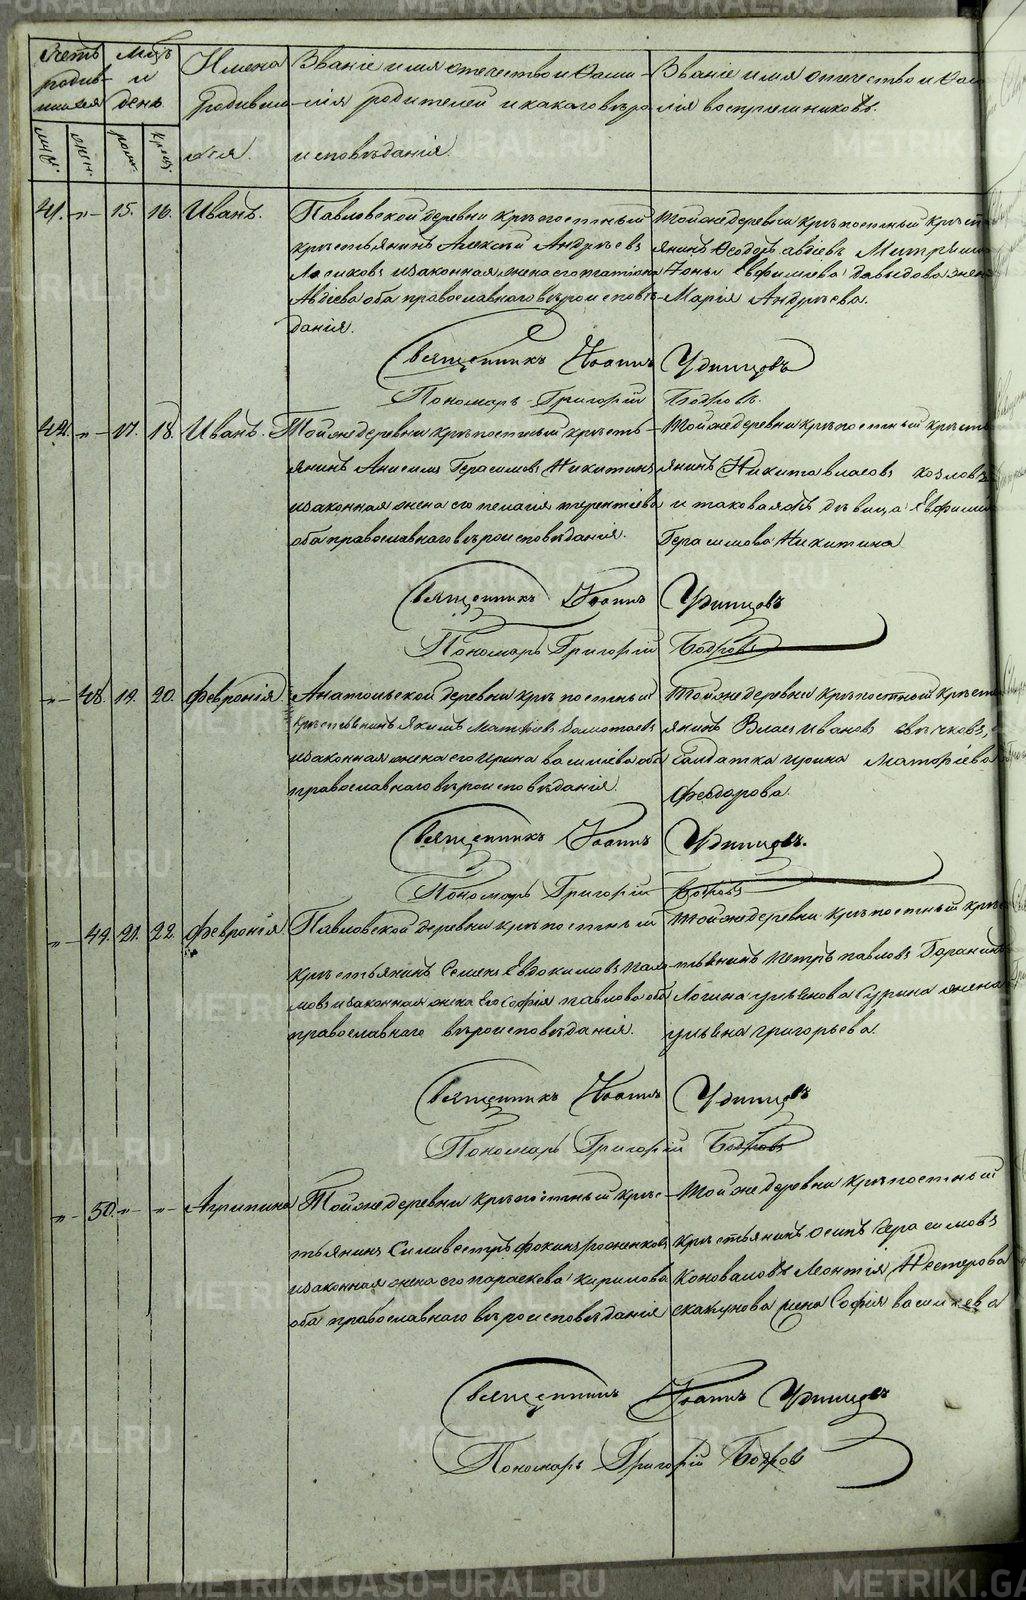 Счетъ родив-шихся
Мцъ и день
Имена родивши-хся.
Званіе имя отечество и Фами-лія родителей и какого вѣро-исповѣданія.
Званіе имя отечество и Фами-лія воспріемниковъ.
муж. жен. рожд. крещ.
41. -„- 15. 16. Иванъ.
Павловской деревни крѣпостный
крѣстьянинъ Алексѣй Андрѣевъ
и законная жена его татіана
Авдіева оба православнаго вѣроисповѣ-
данія.
Тойже деревни крѣпостный крѣсть-
янинъ Ѳеодоръ авдіевъ
Іоны Евфиміева давыдова жена
Марія Андрѣева.
Священникъ Іоаннъ Удинцовъ
Пономарь Григорій Бодровъ.
42. -„- 17. 18. Иванъ.
Тойже деревни крѣпостный крѣсть-
янинъ Анисимъ Герасимовъ Никитинъ
и законная жена его пелагія терентіева
оба православнаго вѣроисповѣданія.
Тойже деревни крѣпостный крѣсть-
янинъ Никита власовъ козловъ
и таковаяжъ дѣвица Евфимія
Герасимова Никитина
Священникъ Іоаннъ Удинцовъ
Пономарь Григорій Бодровъ
-„- 48. 19. 20. Февронія
Анатольской деревни крѣпостный
крѣстьянинъ Якимъ Матфіевъ
и законная жена его Ирина василіева оба
православнаго вѣроисповѣданія.
Тойже деревни крѣпостный крѣсть-
янинъ Власъ Ивановъ
Солдатка ирина Матфіева
Феѡдорова.
Священникъ Іоаннъ Удинцовъ.
Пономарь Григорій Бодровъ
-„- 49. 21. 22. Февронія.
Павловской деревни крѣпостный
крѣстьянинъ Семенъ Евдокимовъ
и законная жена Его Софія павлова оба
православнаго вѣроисповѣданія.
Тойже деревни крѣпостный крѣс-
тьянинъ Петръ павловъ Баранинъ
Логина ульянова Сурина жена
ульяна григорьева.
Священникъ Іоаннъ Удинцовъ
Пономарь Григорій Бодровъ
-„- 50. -„- -„- Агрипина
Тойже деревни крѣпостный крѣс-
тьянинъ Сильвестръ фокинъ
и законная жена его параскева кирилова
оба православнаго вѣроисповѣданія
Тойже деревни крѣпостный
крѣстьянинъ осипъ герасимовъ
Коноваловъ Леонтія Нестерова
скакунова жена Софія василіева
Священникъ Іоаннъ Удинцовъ
Пономарь Григорій Бодровъ
METRIKI.GASO-URAL.RU